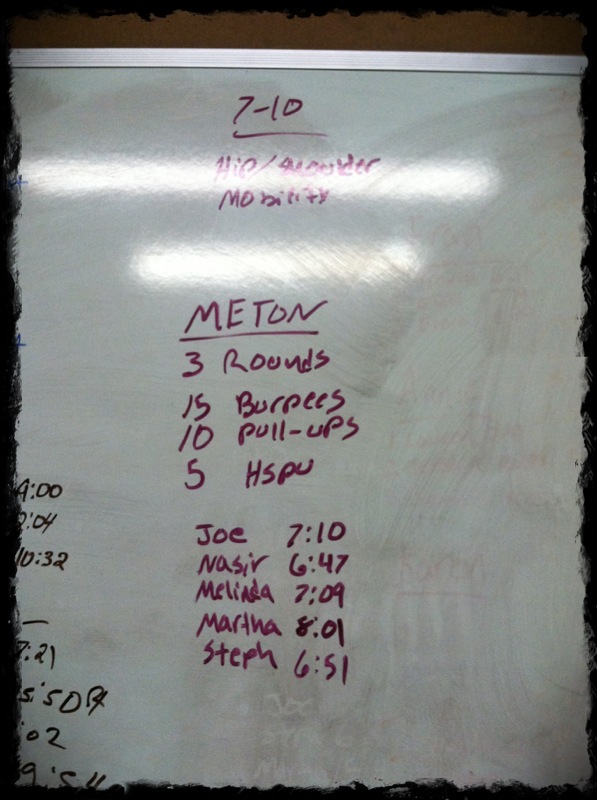 7-10
Hip/Shoulder
Mobility
METCON
3 Rounds
15 Burpees
10 Pull-ups
5 HSPU
Joe 7:10
Nasir 6:47
Melinda 7:09
Martha 8:01
Steph 6:51
9:00
2:04
10:32
7:21
5:50 RX
:02